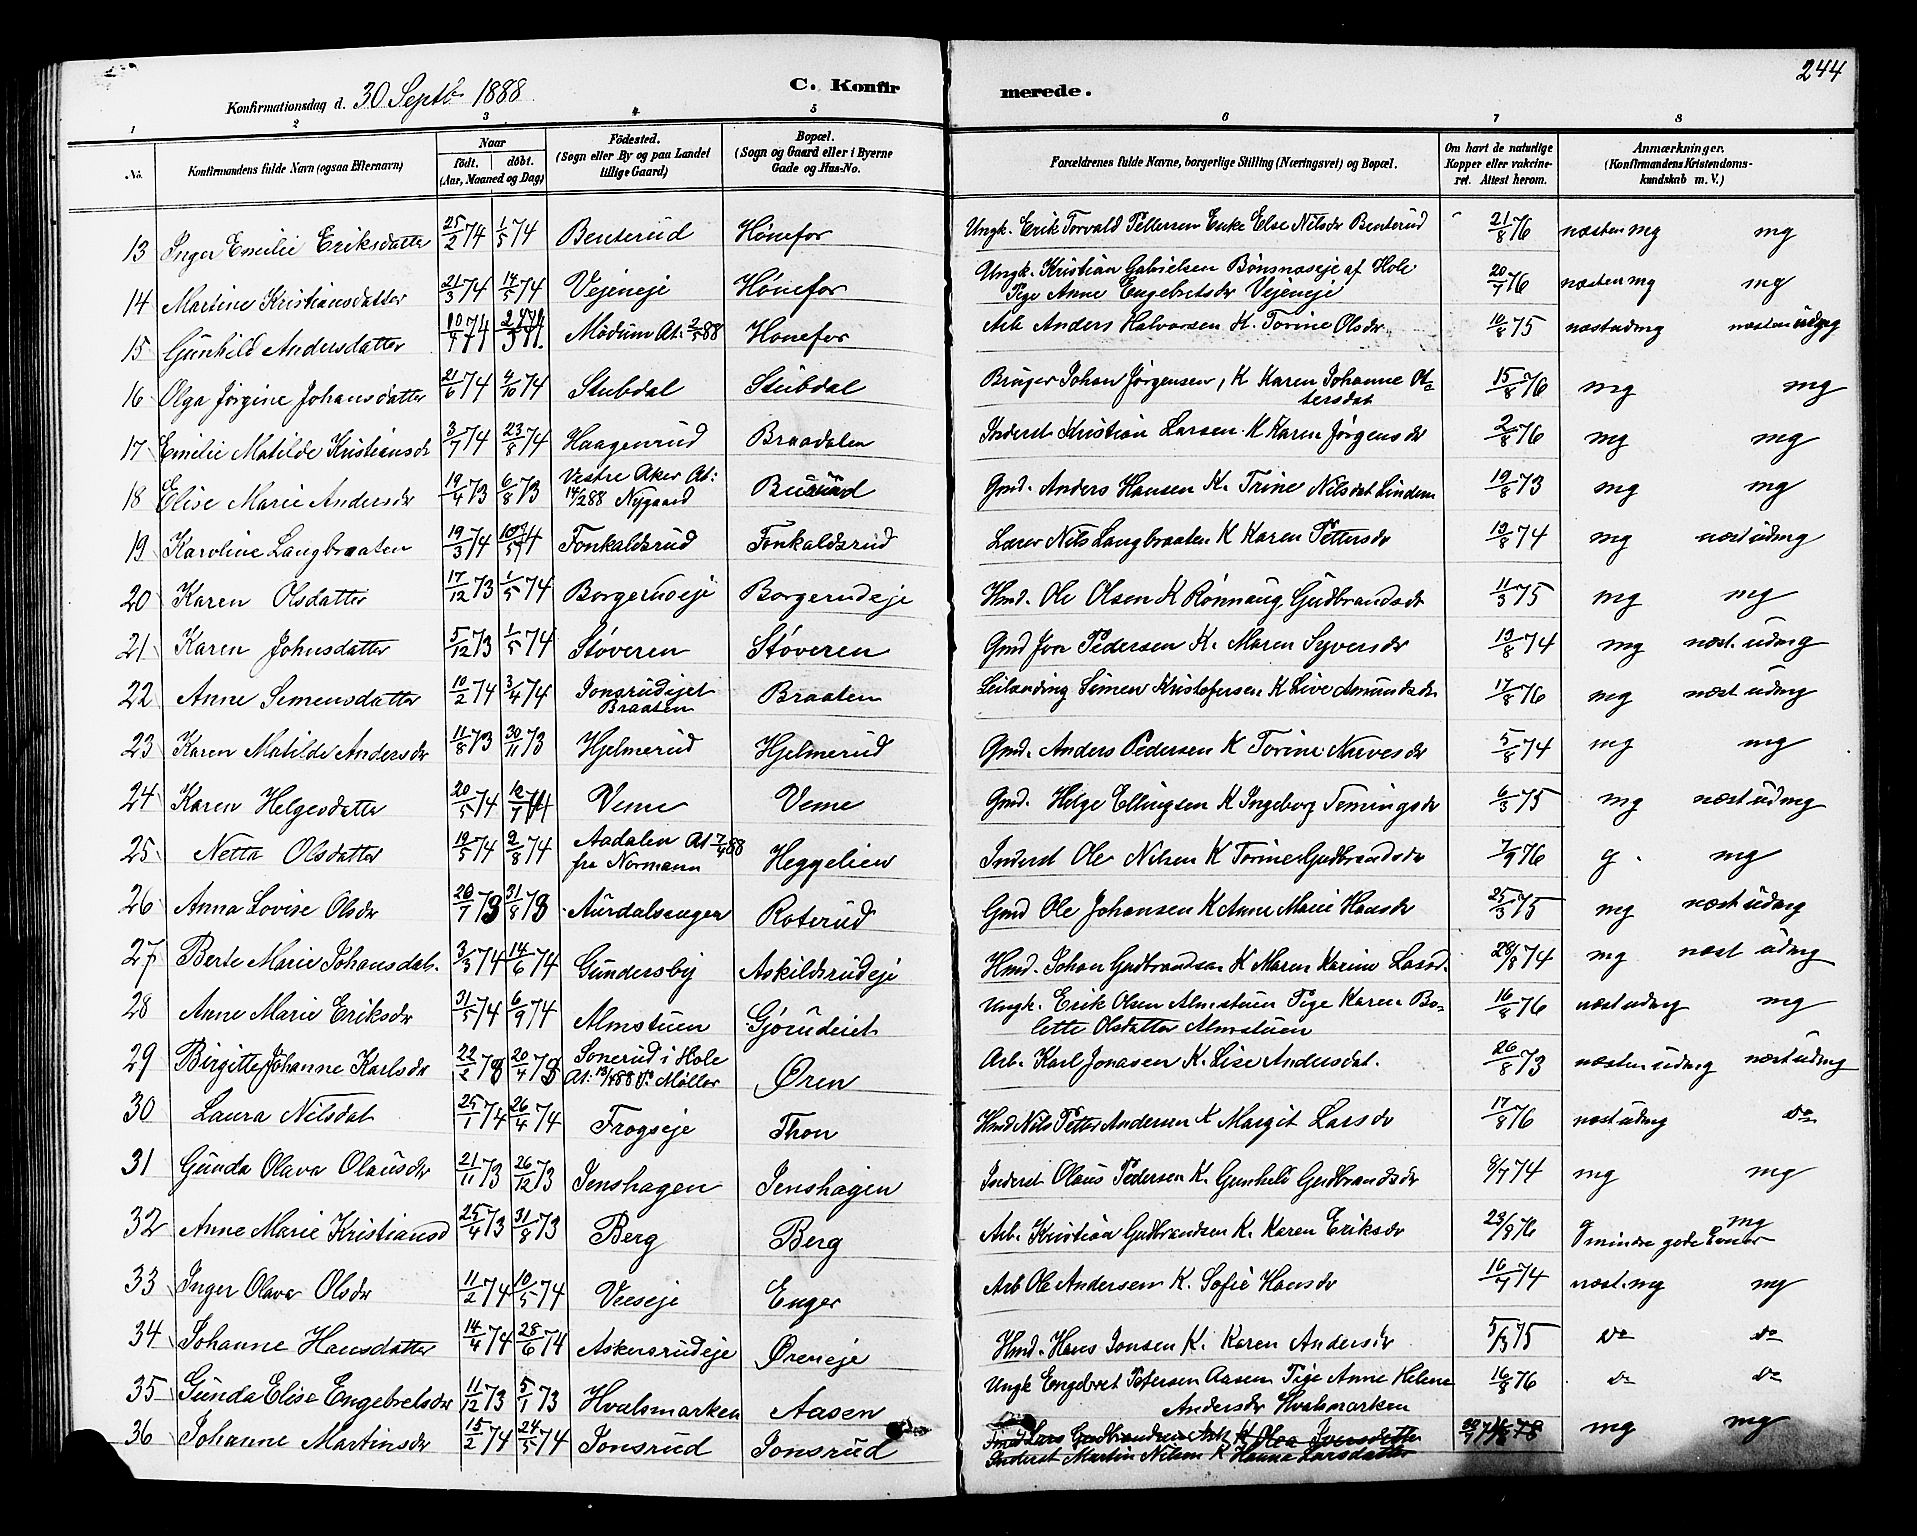 244
Konfirmationsdag d. 30 Septb. 1888. C. Konfirmerede.
1 2 3 4 5 6 7 8
No. Konfirmandens fulde Navn (ogsaa Efternavn) Naar født. døbt. (Aar, Maaned og Dag) Födested. (Sogn eller By og paa Landet tillige Gaard) Bopæl. (Sogn og Gaard eller i Byerne Gade og Hus-No. Forældrenes fulde Navne, borgerlige Stilling (Næringsvei) og Bopæl. Om havt de naturlige Kopper eller vakcineret. Attest herom. Anmærkninger. (Konfirmandens Kristendomskundskab m. V.)
13 Inger Emilie Eriksdatter 25/2 74 1/5 74 Benterud Hönefos Ungk. Erik Torvald Pettersen Enke Else Nilsdr Benterud 21/8 76 næsten mg mg
14 Martine Kristiansdatter 21/3 74 14/5 74 Vejeneje Hønefos Ungk. Kristian Gabrielsen Bönsnæseje af Hole
Pige Anne Engebretsdr Vejeneje 20/7 76 næsten mg mg
15 Gunhild Andersdatter 10/4 74 Modum At. 2/5 88 Honefos Arb Anders Halvorsen K. Torine Olsdr. 16/8 75 næst udmg næsten udmg
16 Olga Jørgine Johansdatter 21/6 74 4/10 74 Stubdal Stubdal Bruger Johan Jørgensen, K Karen Johanne Ot-
tersdat 15/8 76 mg mg
17 Emilie Matilde Kristiansdr 3/7 74 23/8 74 Haagenrud Braadalen Inderst Kristian Larsen K Karen Jørgensdr 2/8 76 mg mg
18 Elise Marie Andersdr 19/4 73 6/8 73 Vestre Aker At:
14/2 88 Nygaard Busund Gmd. Anders Hansen K. Trine Nilsdat Lindem 19/8 73 mg mg
19 Karoline Langbraaten 19/3 74 Fonkaldsrud Fonkaldsrud Lærer Nils Langbraaten K Karen Pettersdr 19/8 74 mg næst udmg
20 Karen Olsdatter 17/12 73 1/5 74 Borgerudeje Borgerudeje Hmd. Ole Olsen K Rønnaug Gudbrandsdr 11/3 75 mg mg
21 Karen Johnsdatter 5/12 73 1/5 74 Støveren Støveren Gmd Jon Pedersen K. Maren Syversdr 19/8 74 mg næst. udmg
22 Anne Simensdatter 10/2 74 3/4 74 Jonsrudejet
Braaten Braaten Leilænding Simen Kristofersen K Live Amundsdr 17/8 76 mg næst udmg
23 Karen Matilde Andersdr 11/8 73 30/11 73 Hjelmerud Hjelmerud Gmd. Anders Pedersen K Torine Narvesdr 5/8 74 mg mg
24 Karen Helgesdatter 20/5 74 12/7 74 Veme Veme Gmd. Helge Ellingsen K Ingeborg Temingsdr 6/3 75 mg næst udmg
25 Netta Olsdatter 19/5 74 9/8 74 Aadalen At 7/4 88
fra Normann Heggelien Inderst Ole Nilsen K Torine Gudbrandsdr 7/9 76 g. mg
26 Anna Lovise Olsdr 20/7 73 31/8 73 Aurdalsengen Roterud Gmd Ole Johansen K Anne Marie Hansdr 25/3 75 mg næst udmg
27 Berte Marie Johansdatr. 3/3 74 14/6 74 Gundersby Askildsrudeje Hmd. Johan Gudbrandsen K Maren Karine Larsd. 28/8 74 mg næst udmg
28 Anne Marie Eriksdr 31/5 74 6/9 74 Almstuen Gjörudeiet Ungk. Erik Olsen Almstuen Pige Karen Bo-
lette Olsdatter Almstuen 16/8 76 næst udmg mg
29 Birgitte Johanne Karlsdr 22/2 73 20/4 73 Sonerud i Hole
At: 13/4 88 Pr Møller Øren Arb. Karl Jonasen K. Lise Andersdat. 26/8 73 næsten udmg næst udmg
30 Laura Nilsdat 25/1 74 26/4 74 Frogseje Thon Hmd Nils Petter Andersen K Margit Larsdr 17/8 76 næst udmg do
31 Gunda Olava Olausdr 21/11 73 26/12 73 Jenshagen Jenshagen Inderst Olaus Pedersen K. Gunhild Gudbrandsdr 9/7 74 mg mg
32 Anne Marie Kristiansd 25/4 73 31/8 73 Berg Berg Arb. Kristian Gudbrandsen K. Karen Eriksdr 23/9 76 mindre gode Evner mg
33 Inger Olava Olsdr 11/2 74 10/5 74 Veseje Enger Arb Ole Andersen K. Sofie Hansdr 16/7 74 næst. mg mg
34 Johanne Hansdatter 14/4 74 28/6 74 Askersrudeje Øreneje Hmd. Hans Jonsen K. Karen Andersdr 5/3 75 do do
35 Gunda Elise Engebretsdr 11/12 73 5/1 73 Hvalsmarken Aasen Ungk Engebret Petersen Aasen Pige Anne Helene
Andersdr Hvalsmarken 16/8 76 do do
36 Johanne Martinsdr 15/2 74 24/5 74 Jonsrud Jonsrud Lars Gudbrandsen K Olea Iversdatter
Inderst Martin Nilsen K Hanna Larsdatter 78 mg mg